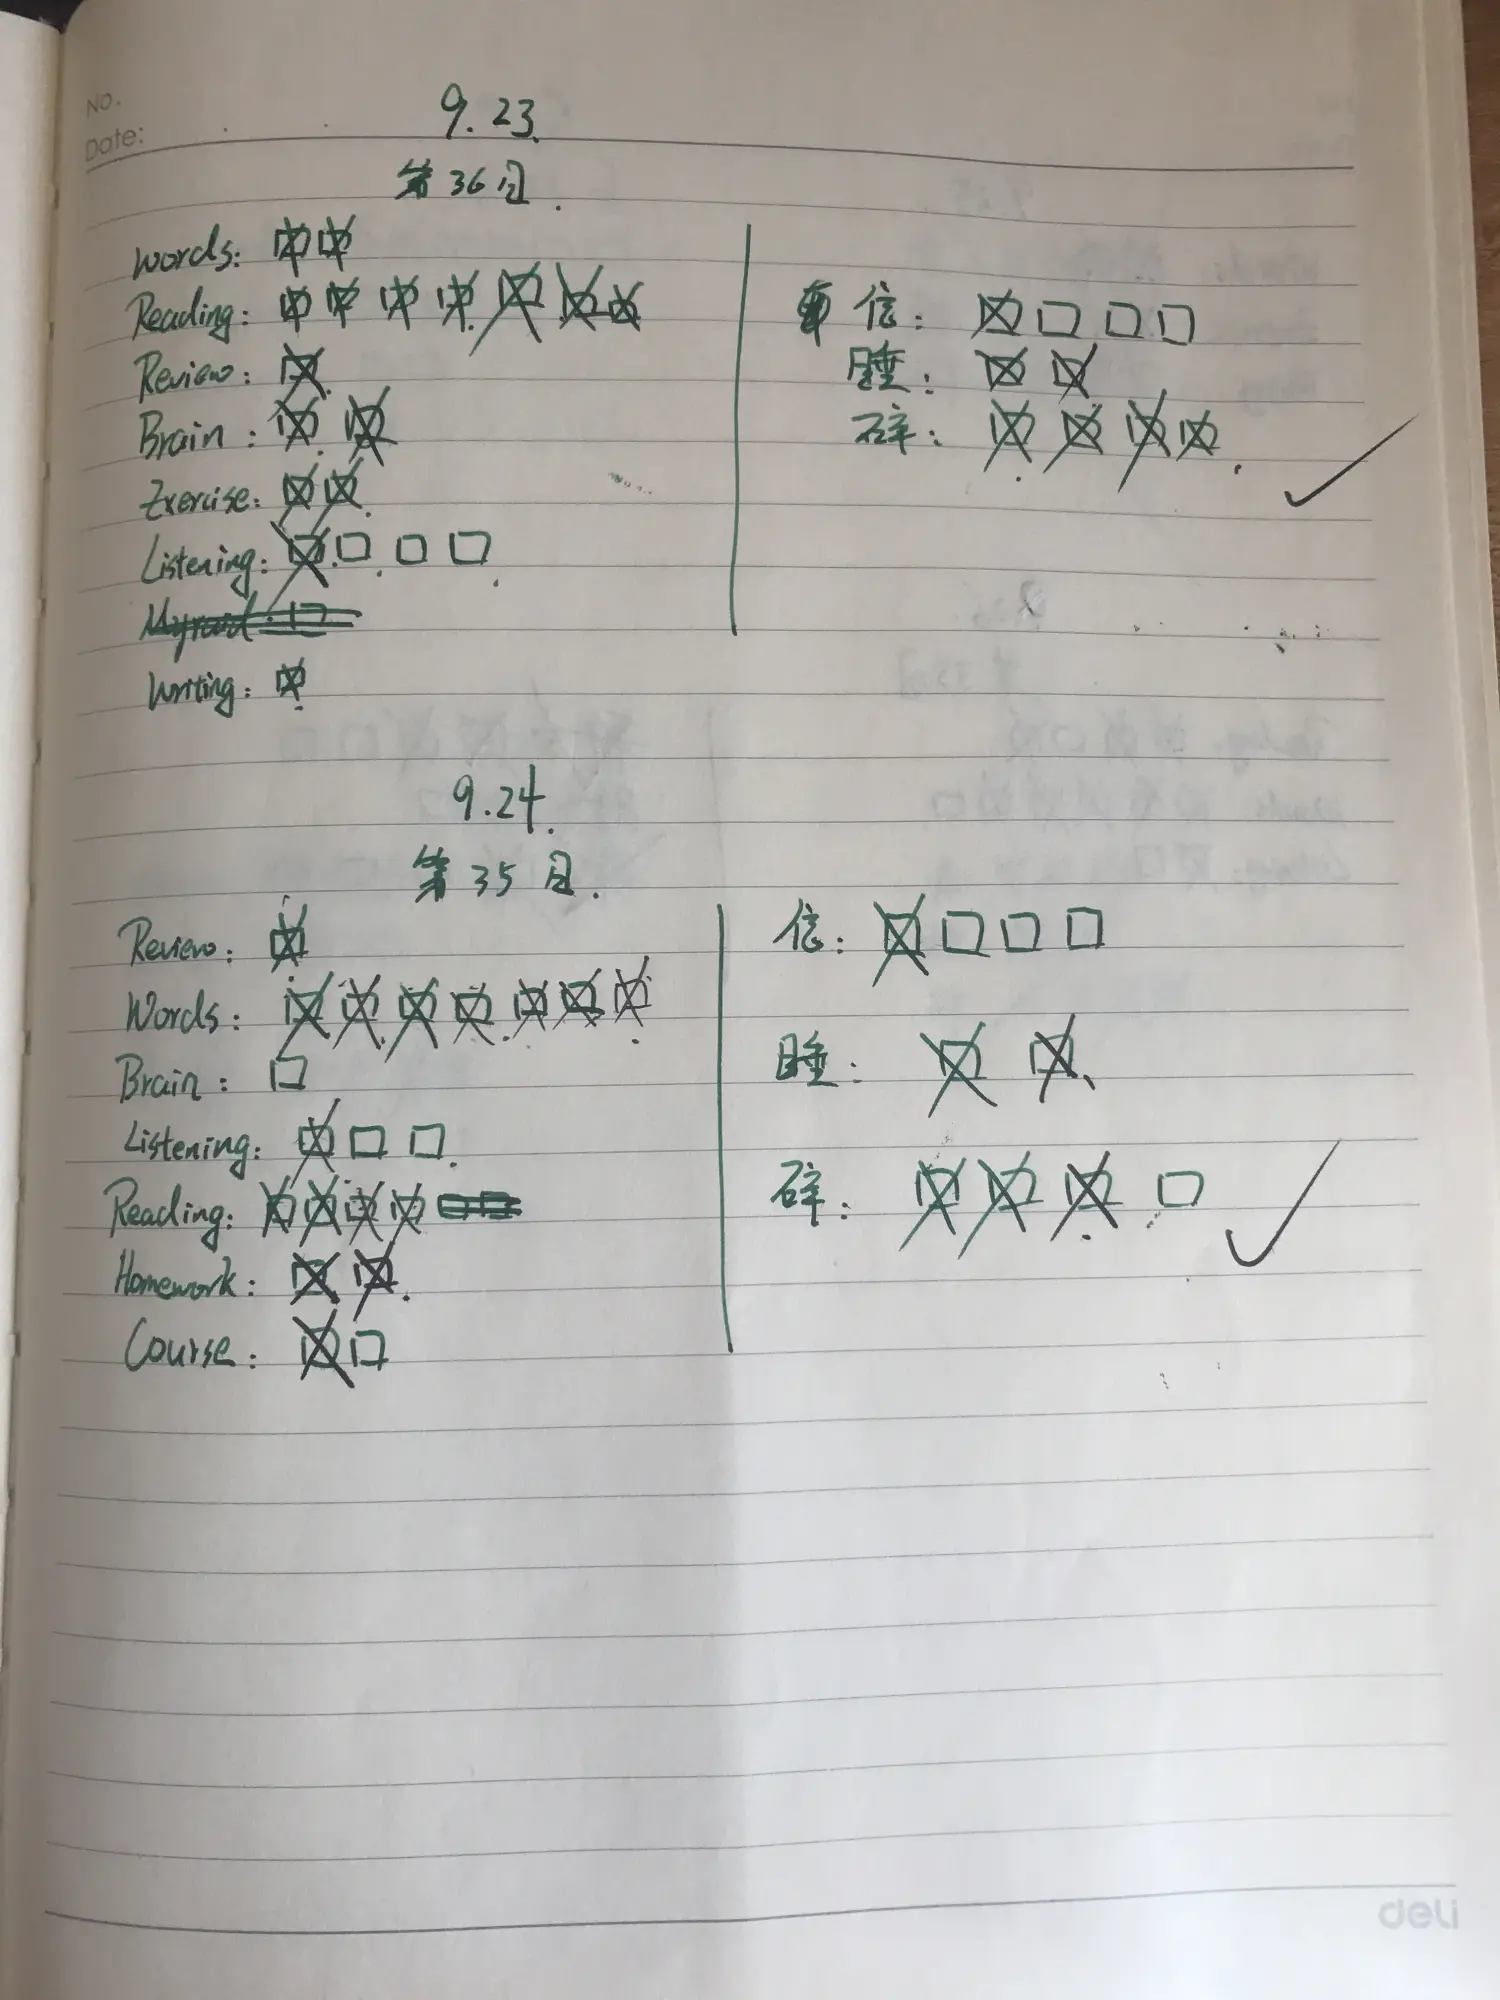 No.
Date:
9.23.
第36日.
words: ☒☒
Reading: ☒☒☒☒☒☒☒
Review: ☒
Brain: ☒☒
Exercise: ☒☒
Listening: ☒☐☐☐
Writing: ☒
信: ☒☐☐☐
睡: ☒☒
碎: ☒☒☒☒
9.24.
第35日.
Review: ☒
Words: ☒☒☒☒☒☒☒
Brain: ☐
Listening: ☒☐☐
Reading: ☒☒☒☒
Homework: ☒☒
Course: ☒☐
信: ☒☐☐☐
睡: ☒☒
碎: ☒☒☒☐
deli